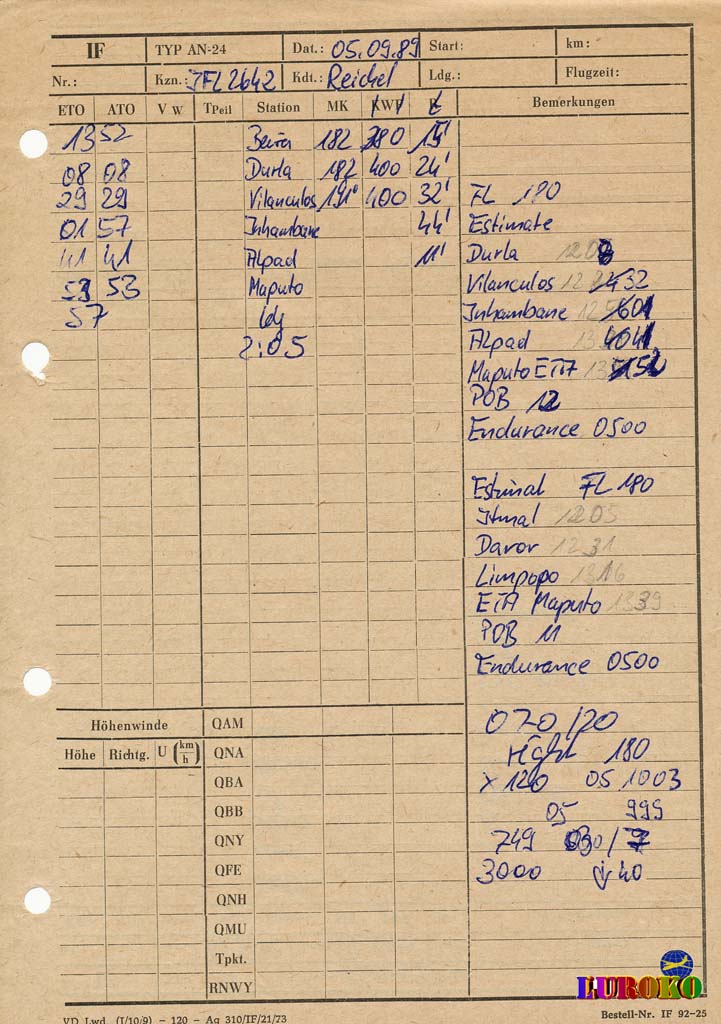 IF TYP AN-24 Dat.: 05.09.89 Start: km:
Nr.: Kzn.: IFL2642 Kdt.: Reichel Ldg.: Flugzeit:
ETO ATO V W TPeil Station MK KWP Bemerkungen
1352 Beira 182 380 15'
08 08 Durla 182 400 24'
29 29 Vilanculos 191° 400 32' FL 180
01 57 Inhambane 44' Estimate
41 41 Alpad 11' Durla 120
53 53 Maputo Vilanculos 32
57 Inhambane 01
2:05 Alpad 41
Maputo ETA 52
POB 12
Endurance 0500
Estimal FL 180
Itmal 1205
Daror 1231
Limpopo 1316
ETA Maputo 1339
POB 11
Endurance 0500
Höhenwinde QAM 070/20
Höhe Richtg. U (km/h) QNA right 180
QBA x 120 05 1003
QBB 05 999
QNY 749
QFE 3000 40
QNH
QMU
Tpkt.
RNWY
LUROKO
VD Lwd. (I/10/9) – 120 – Ag 310/IF/21/73 Bestell-Nr. IF 92-25